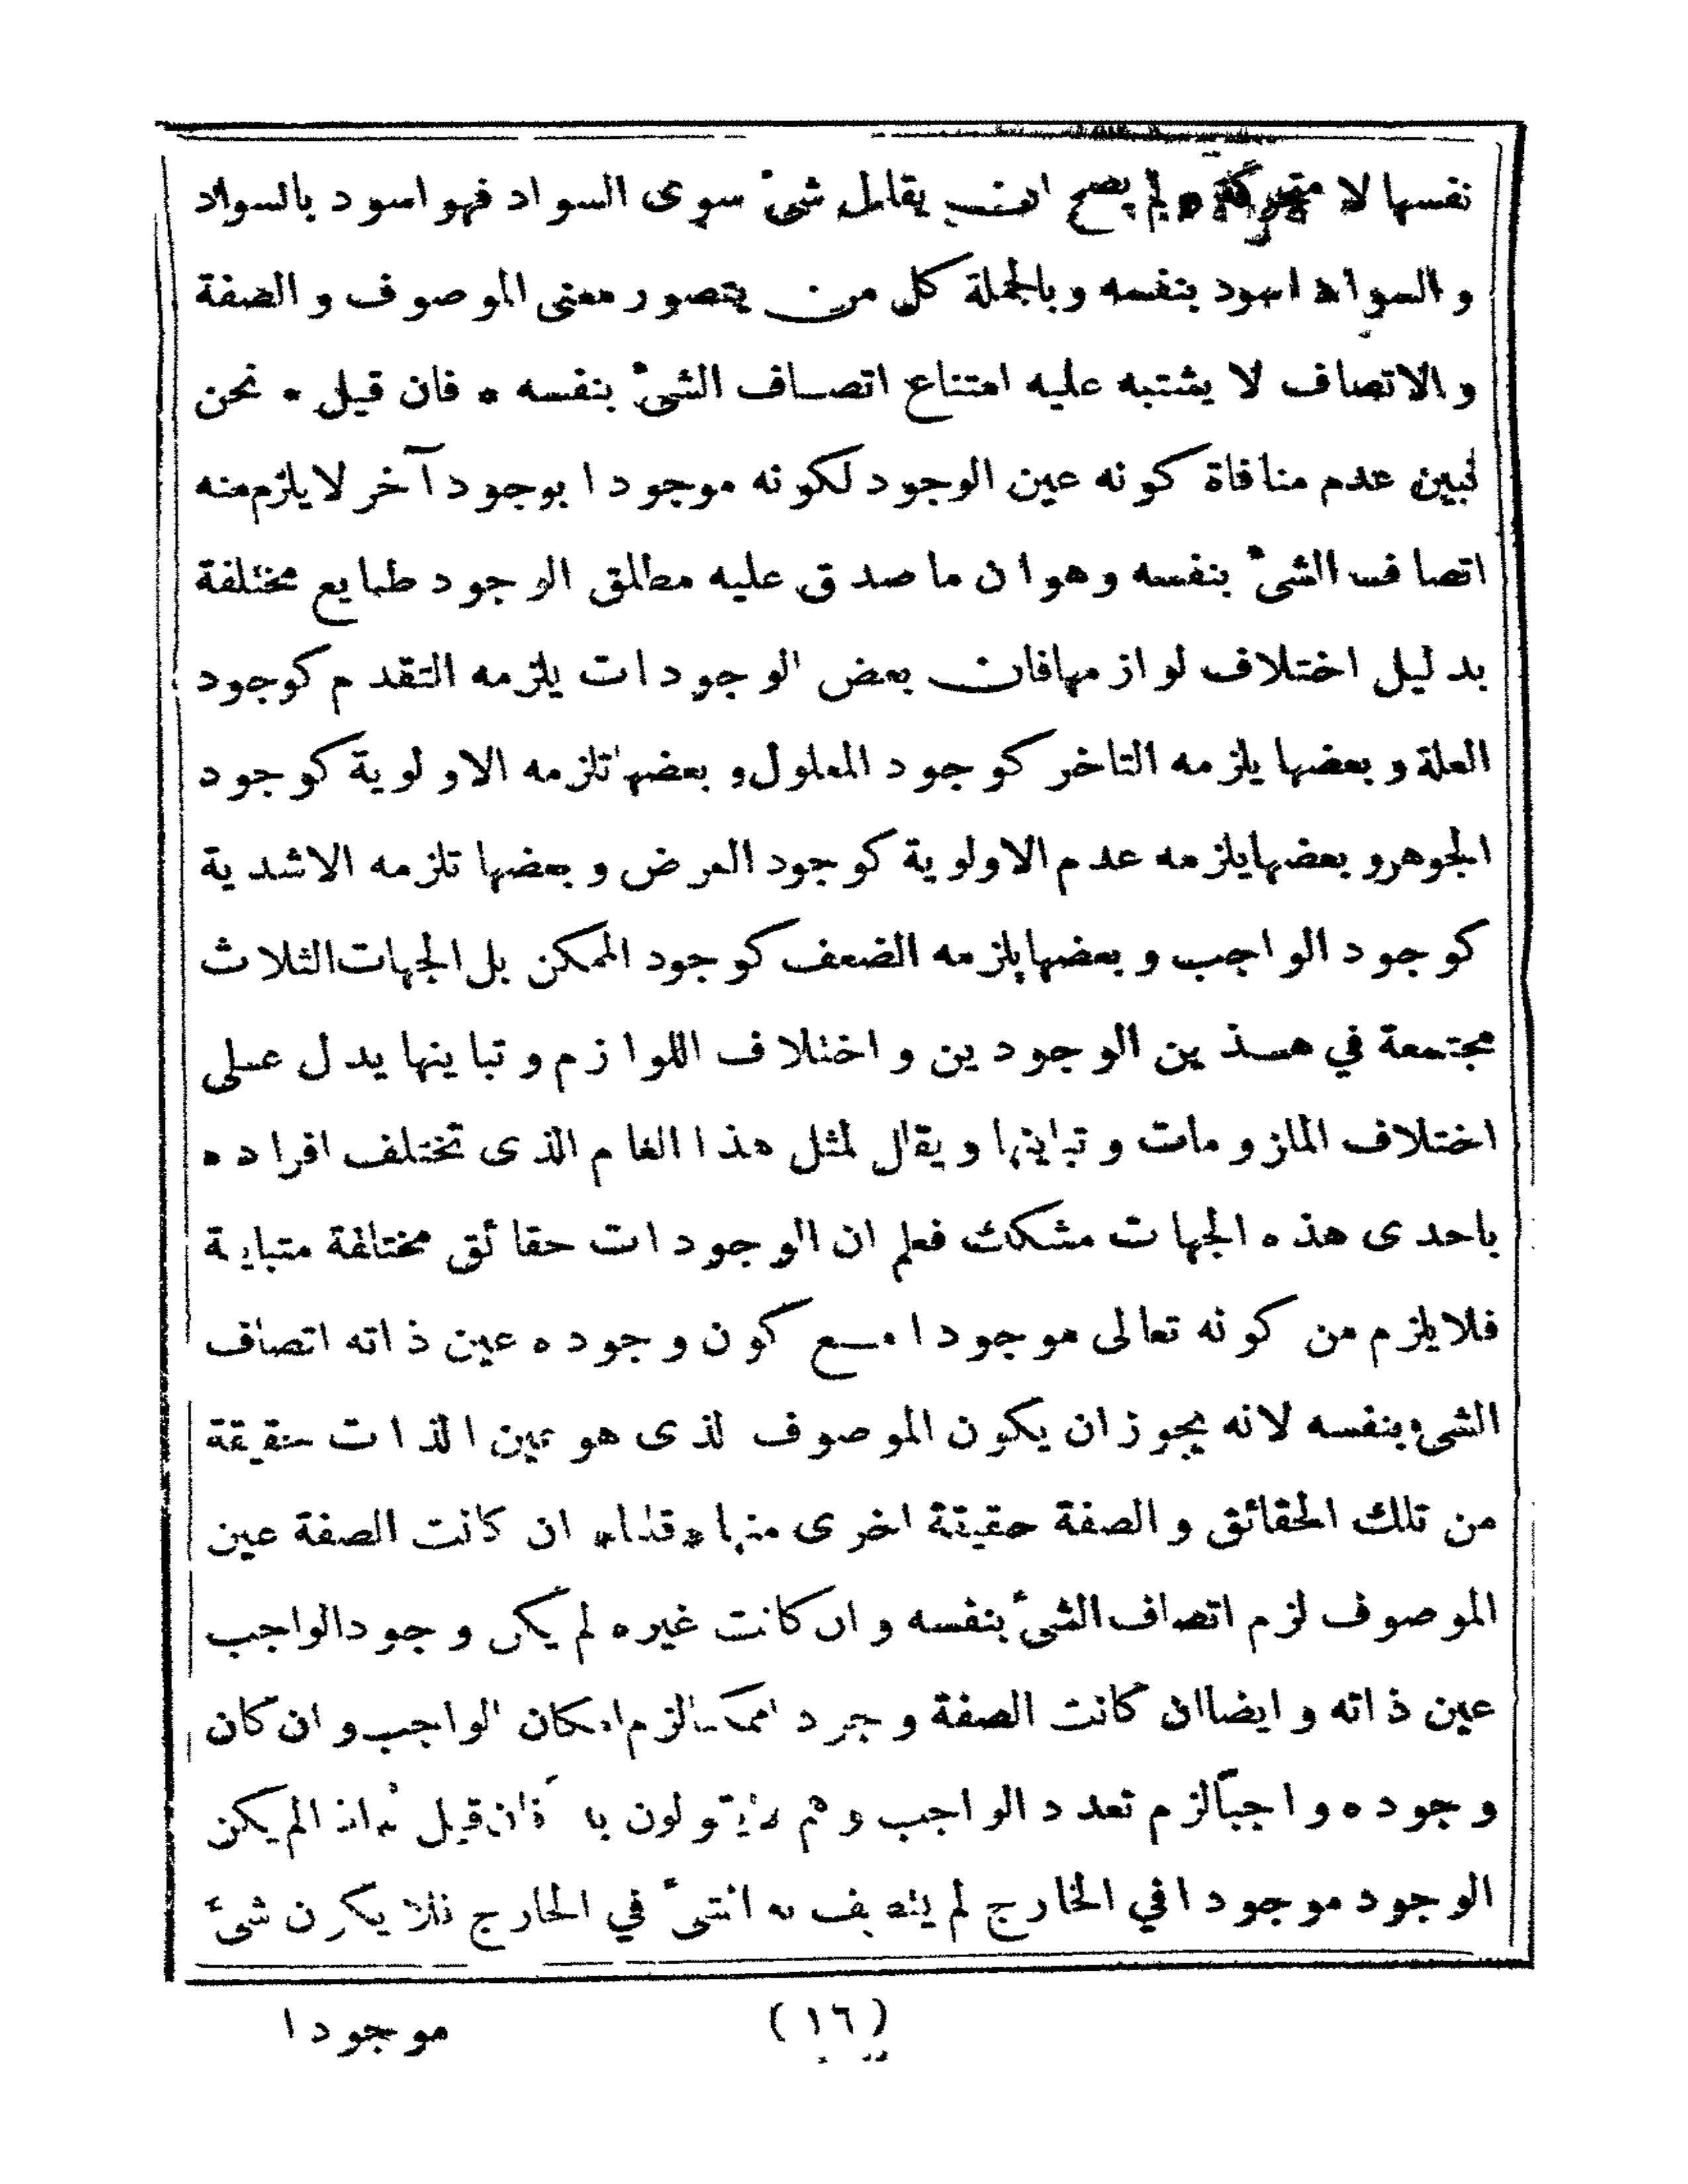 نفسها لا متحركة * لم يصح ان يقابل شئ سوى السواد فهو اسود بالسواد
والسواد اسود بنفسه وبالجملة كل من يتصور معنى الموصوف والصفة
والاتصاف لا يشتبه عليه امتناع اتصاف الشئ بنفسه * فان قيل * نحن
نبين عدم منافاة كونه عين الوجود لكونه موجودا بوجود آخر لا يلزم منه
اتصاف الشئ بنفسه وهو ان ما صدق عليه مطلق الوجود طبايع مختلفة
بدليل اختلاف لوازمها فان بعض الوجودات يلزمه التقدم كوجود
العلة وبعضها يلزمه التاخر كوجود المعلول وبعضها تلزمه الاولوية كوجود
الجوهر وبعضها يلزمه عدم الاولوية كوجود العرض وبعضها تلزمه الاشدية
كوجود الواجب وبعضها يلزمه الضعف كوجود الممكن بل الجهات الثلاث
مجتمعة في هذين الوجودين واختلاف اللوازم وتباينها يدل على
اختلاف الملزومات وتباينها ويقال لمثل هذا العام الذى تختلف افراده
باحدى هذه الجهات مشكك فعلم ان الوجودات حقائق مختلفة متباينة
فلا يلزم من كونه تعالى موجودا مع كون وجوده عين ذاته اتصاف
الشئ بنفسه لانه يجوز ان يكون الموصوف الذى هو عين الذات حقيقة
من تلك الحقائق والصفة حقيقة اخرى منها * قلنا * ان كانت الصفة عين
الموصوف لزم اتصاف الشئ بنفسه وان كانت غيره لم يكن وجود الواجب
عين ذاته وايضا ان كانت الصفة وجودا ممكنا لزم امكان الواجب وان كان
وجوده واجباً لزم تعدد الواجب وهم لا يقولون به فان قيل * اذا لم يكن
الوجود موجودا في الخارج لم يتصف به الشئ في الخارج فلا يكون شئ
(١٦)
موجودا